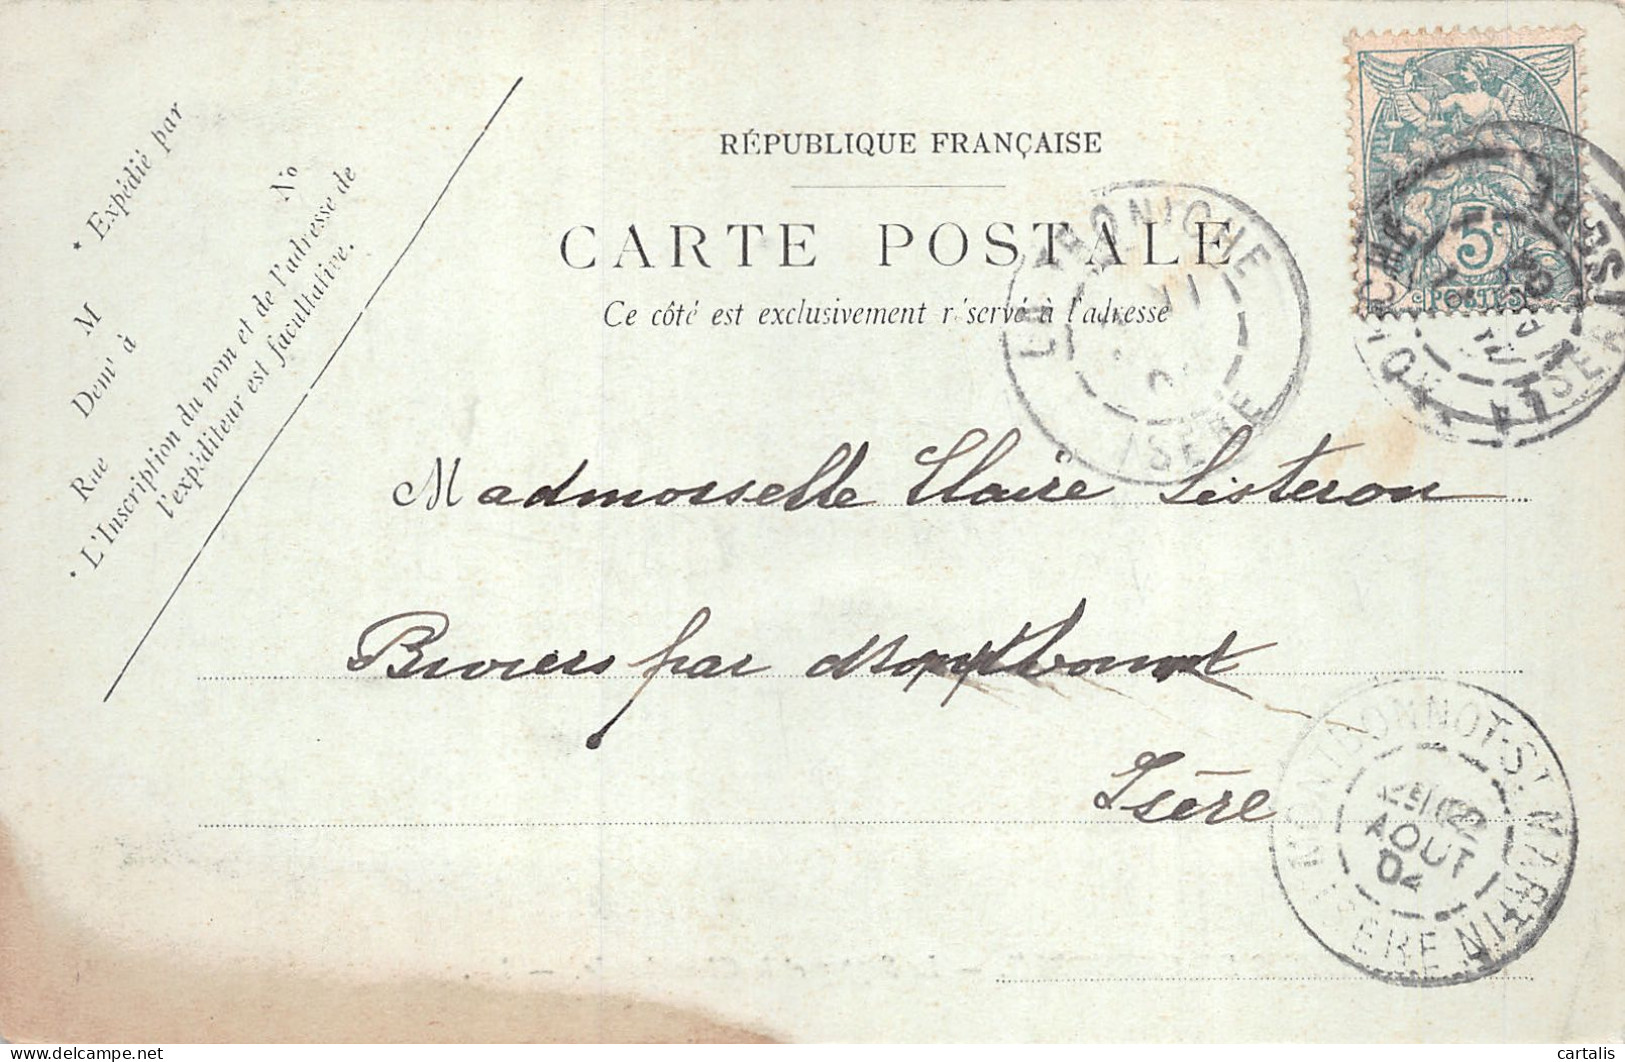 RÉPUBLIQUE FRANÇAISE
CARTE POSTALE
Ce côté est exclusivement réservé à l'adresse
* Expédié par
M
Dem' à
Rue No
* L'Inscription du nom et de l'adresse de
l'expéditeur est facultative.
5c
POSTES
ISÈRE
Madmoiselle Claire Sisteron
Biviers par Montbonnot
Isère
MONTBONNOT-ST MARTIN
ISERE
AOUT
02
delcampe.net
cartalis